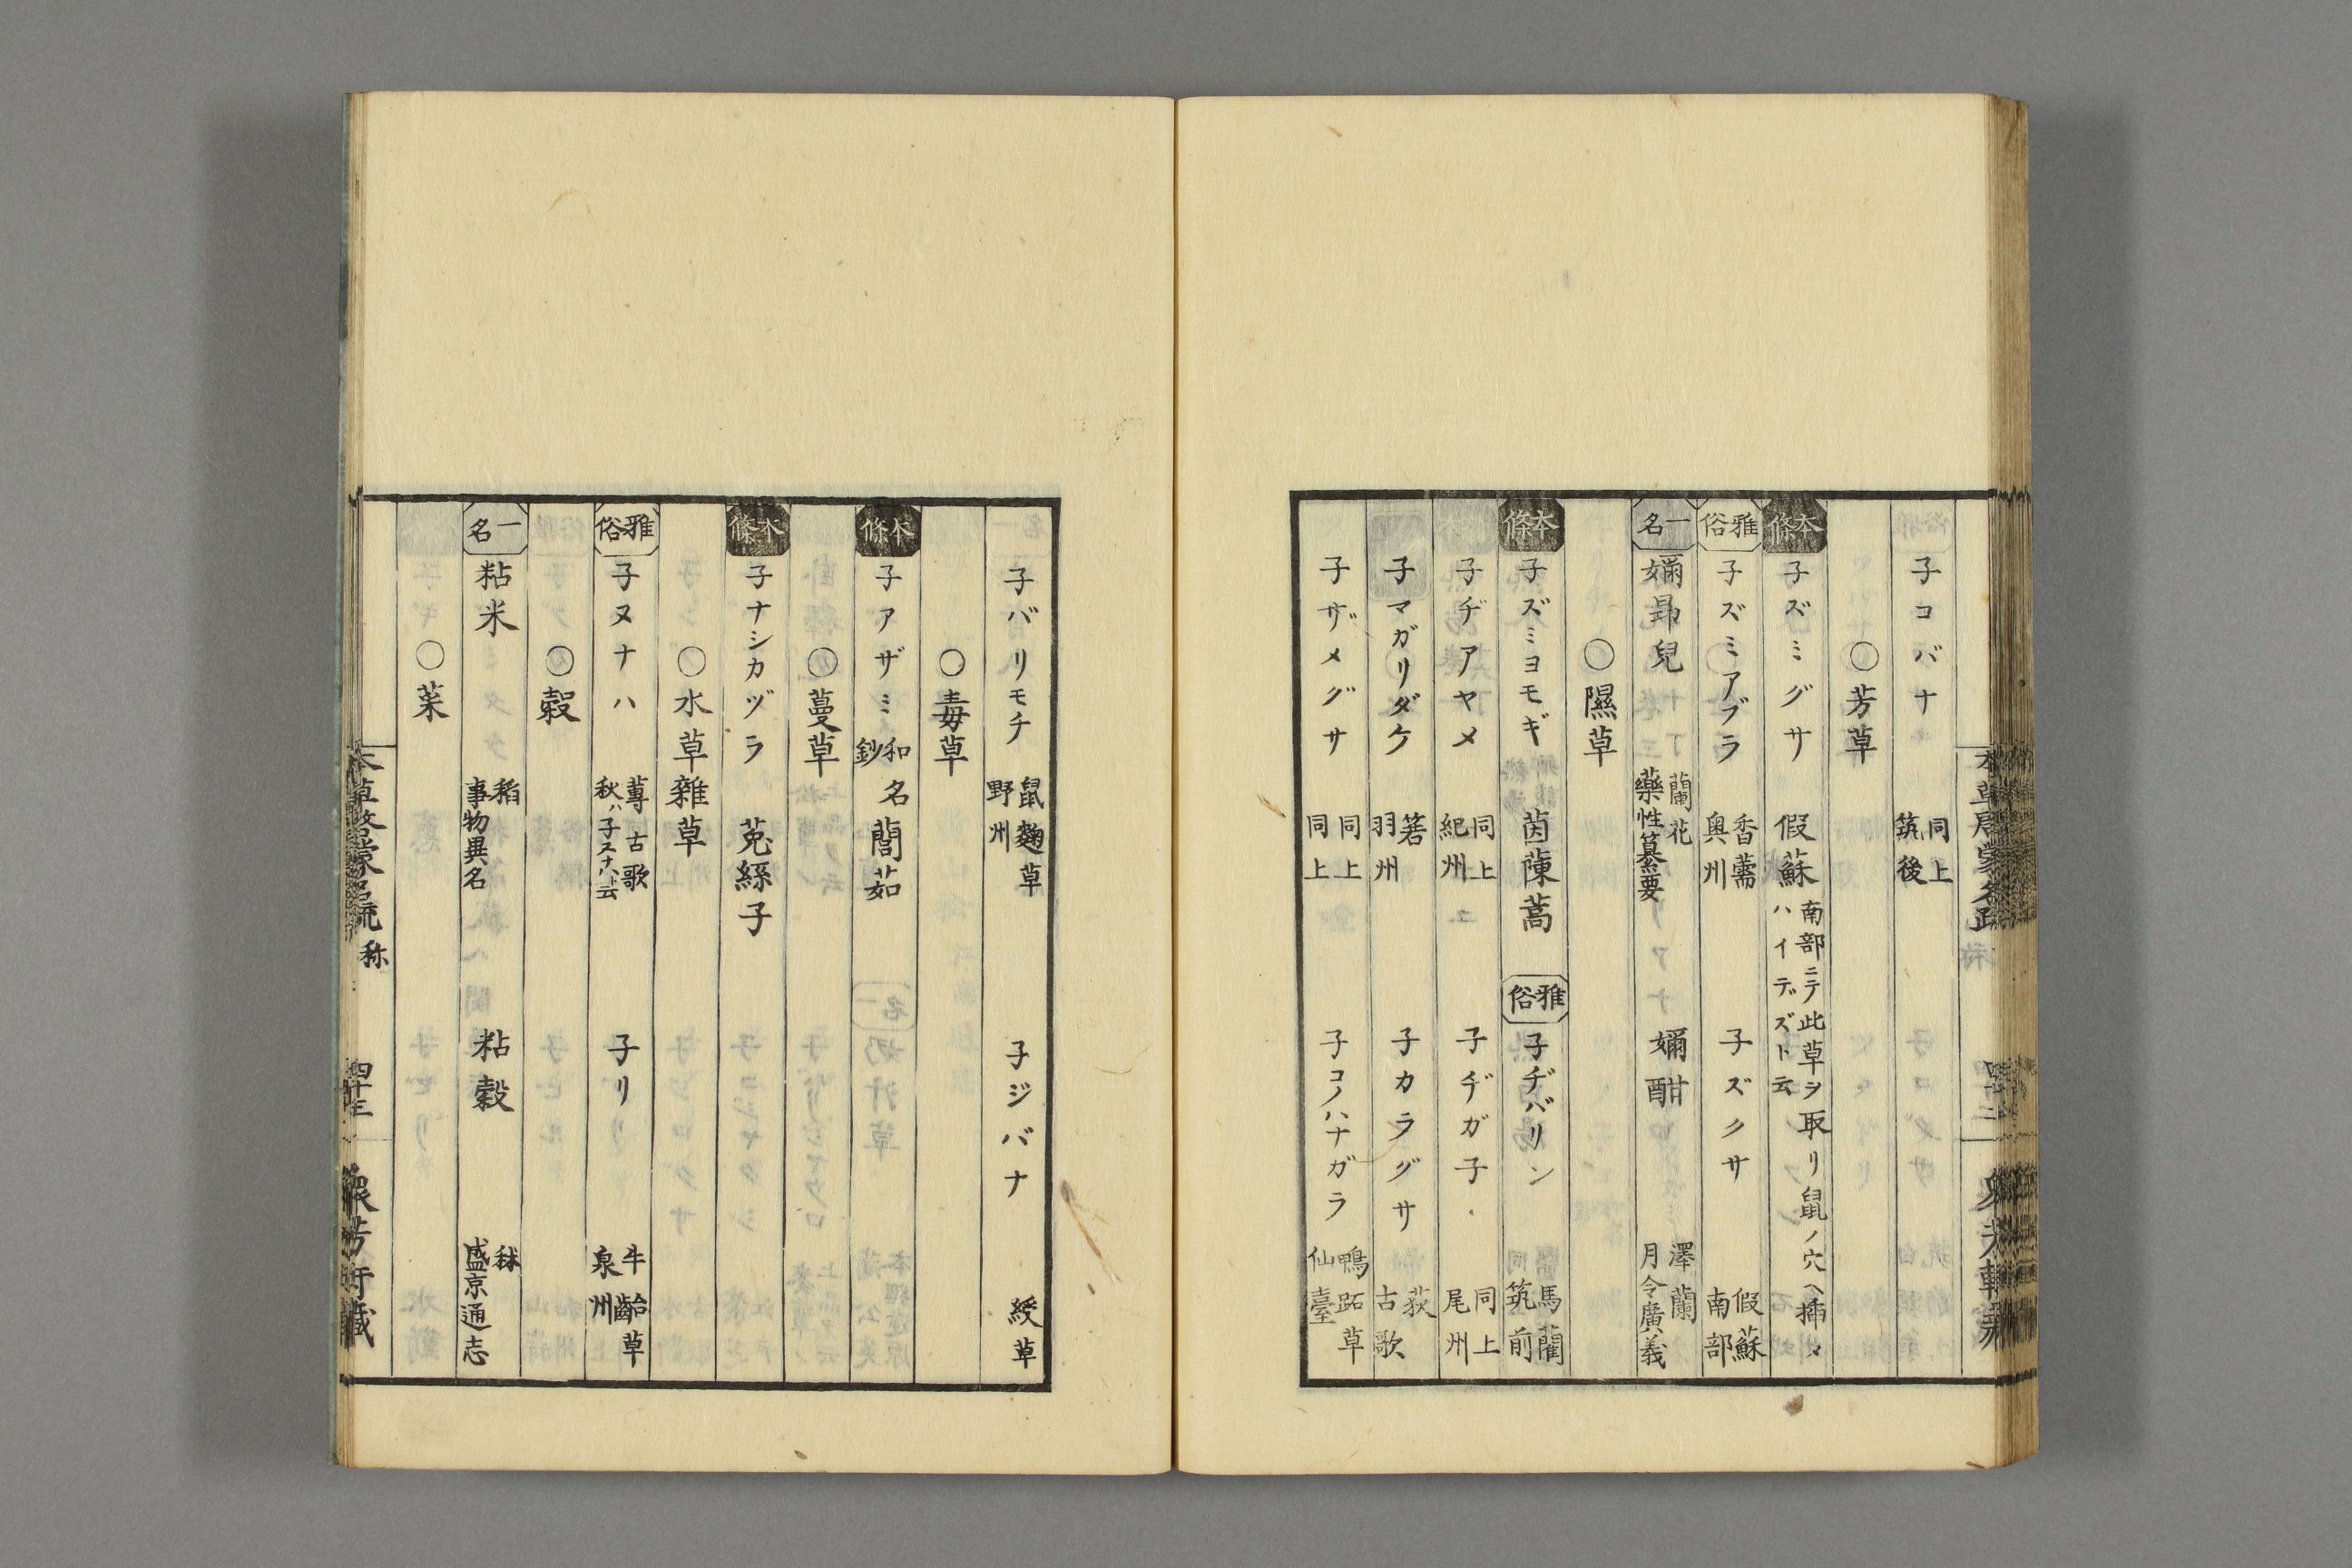 子コバナ 同上 筑後
○芳草
本條 子ズミグサ 假蘇 南部ニテ此草ヲ取リ鼠ノ穴ヘ挿メハイデズト云
雅俗 子ズミアブラ 香薷 奥州 子ズクサ 假蘇 南部
一名 嬭昻兒 蘭花 藥性纂要 嬭酣 澤蘭 月令廣義
○隰草
本條 子ズミヨモギ 茵蔯蒿 雅俗 子ヂバリン 馬藺 筑前
子ヂアヤメ 同上 紀州 子ヂガ子 同上 尾州
子マガリダケ 箬 羽州 子カラグサ 荻 古歌
子ザメグサ 同上 同上 子コノハナガラ 鴨跖草 仙臺
子バリモチ 鼠麴草 野州 子ジバナ 綬草
○毒草
本條 子アザミ 和名鈔 䕡茹
○蔓草
本條 子ナシカヅラ 菟絲子
○水草雜草
雅俗 子ヌナハ 蓴 古歌 秋ハ子スナハト云 子リ 牛齝草 泉州
○穀
一名 粘米 稻 事物異名 粘穀 秫 盛京通志
○菜
本草啓蒙名疏 称 四十三 衆芳軒藏